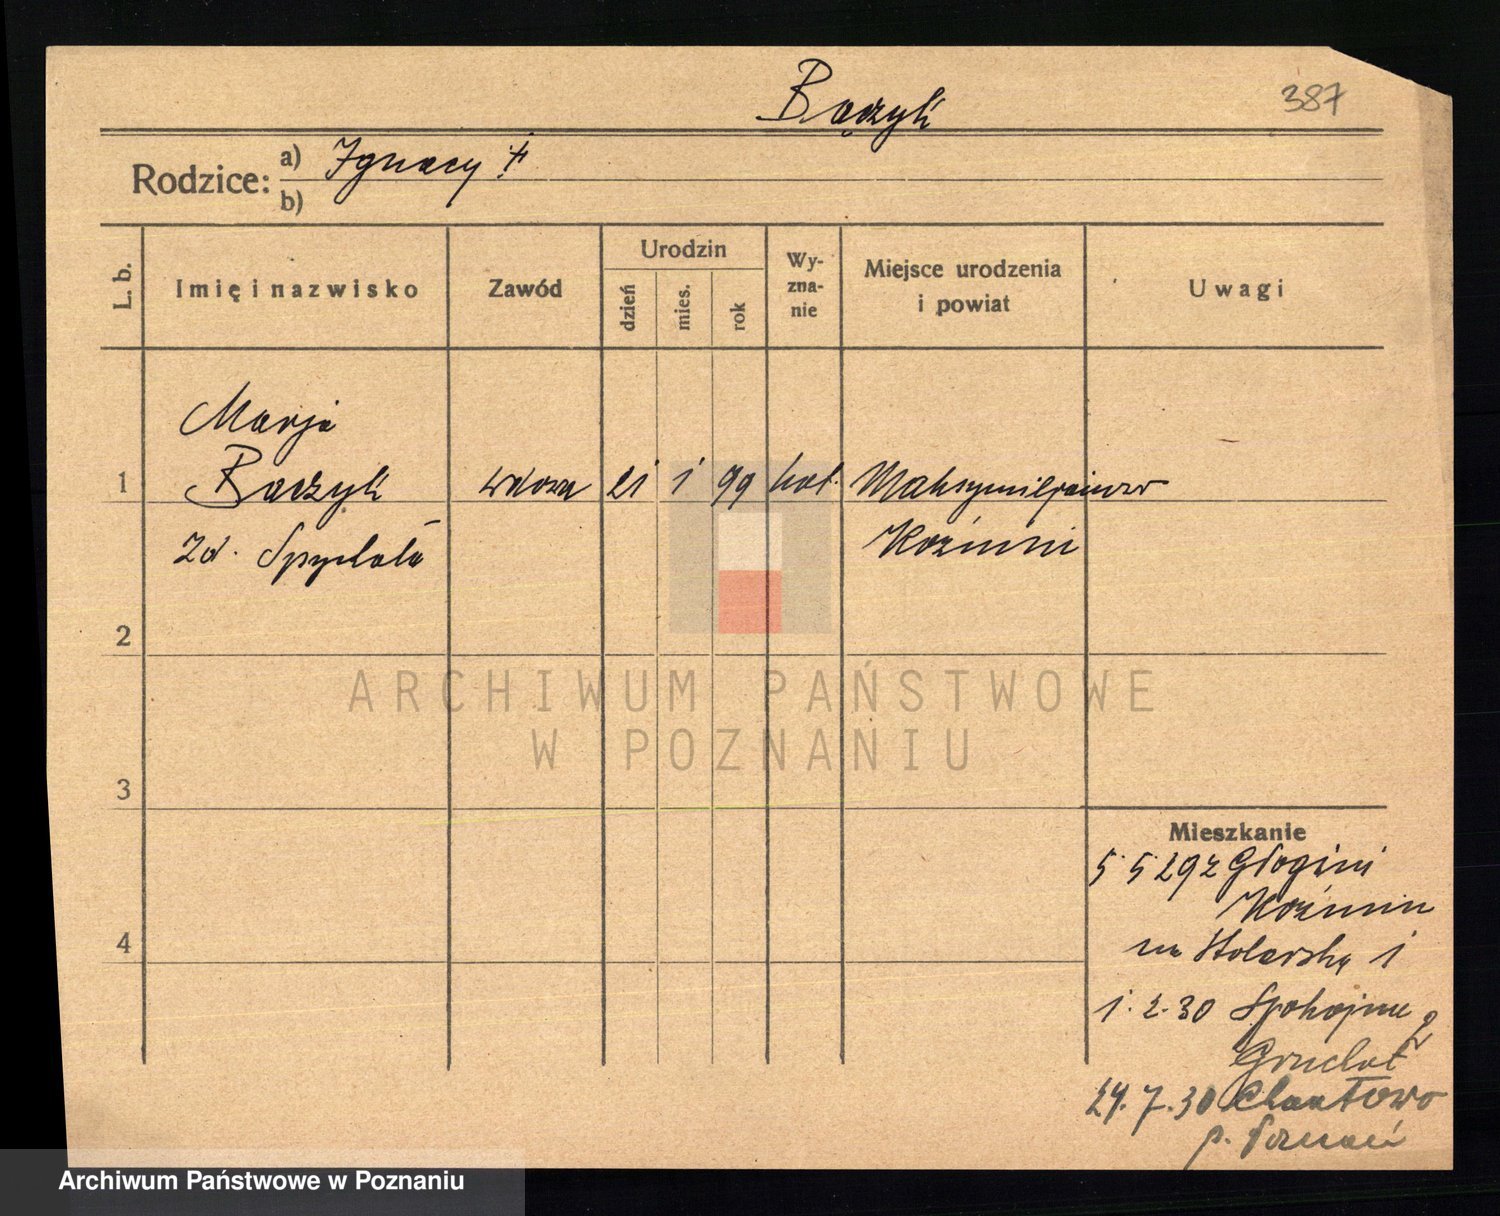 Bączyk
387
Rodzice: a) Ignacy †
b)
L. b.
Imię i nazwisko
Zawód
Urodzin
dzień
mies.
rok
Wy-
zna-
nie
Miejsce urodzenia
i powiat
Uwagi
Marja
1 Bączyk wdowa 21 1 99 kat. Maksymiljanów
zd. Spychała Koźmin
2
3
4
Mieszkanie
5 5 29 z
Koźmin
na Stolarską 1
1. 2. 30 Spokojna 2
29. 7. 30
p. Poznań
ARCHIWUM PAŃSTWOWE
W POZNANIU
Archiwum Państwowe w Poznaniu